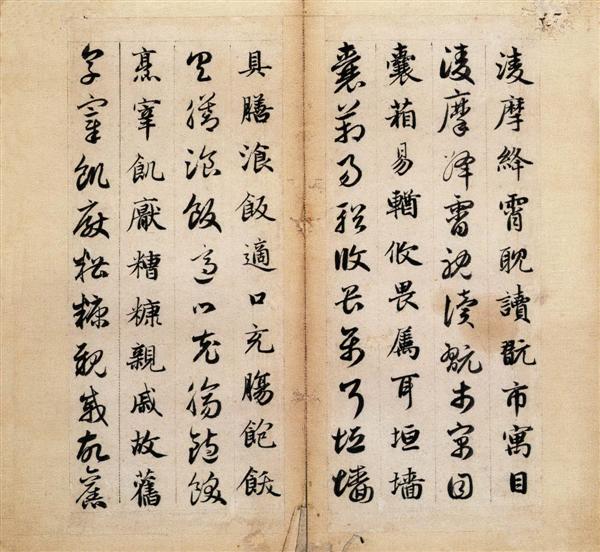 淩摩絳霄耽讀翫市寓目
淩摩絳霄耽讀翫市寓目
囊箱易輶攸畏屬耳垣墻
囊箱易輶攸畏屬耳垣墻
具膳湌飯適口充腸飽飫
具膳湌飯適口充腸飽飫
烹宰飢厭糟糠親戚故舊
烹宰飢厭糟糠親戚故舊